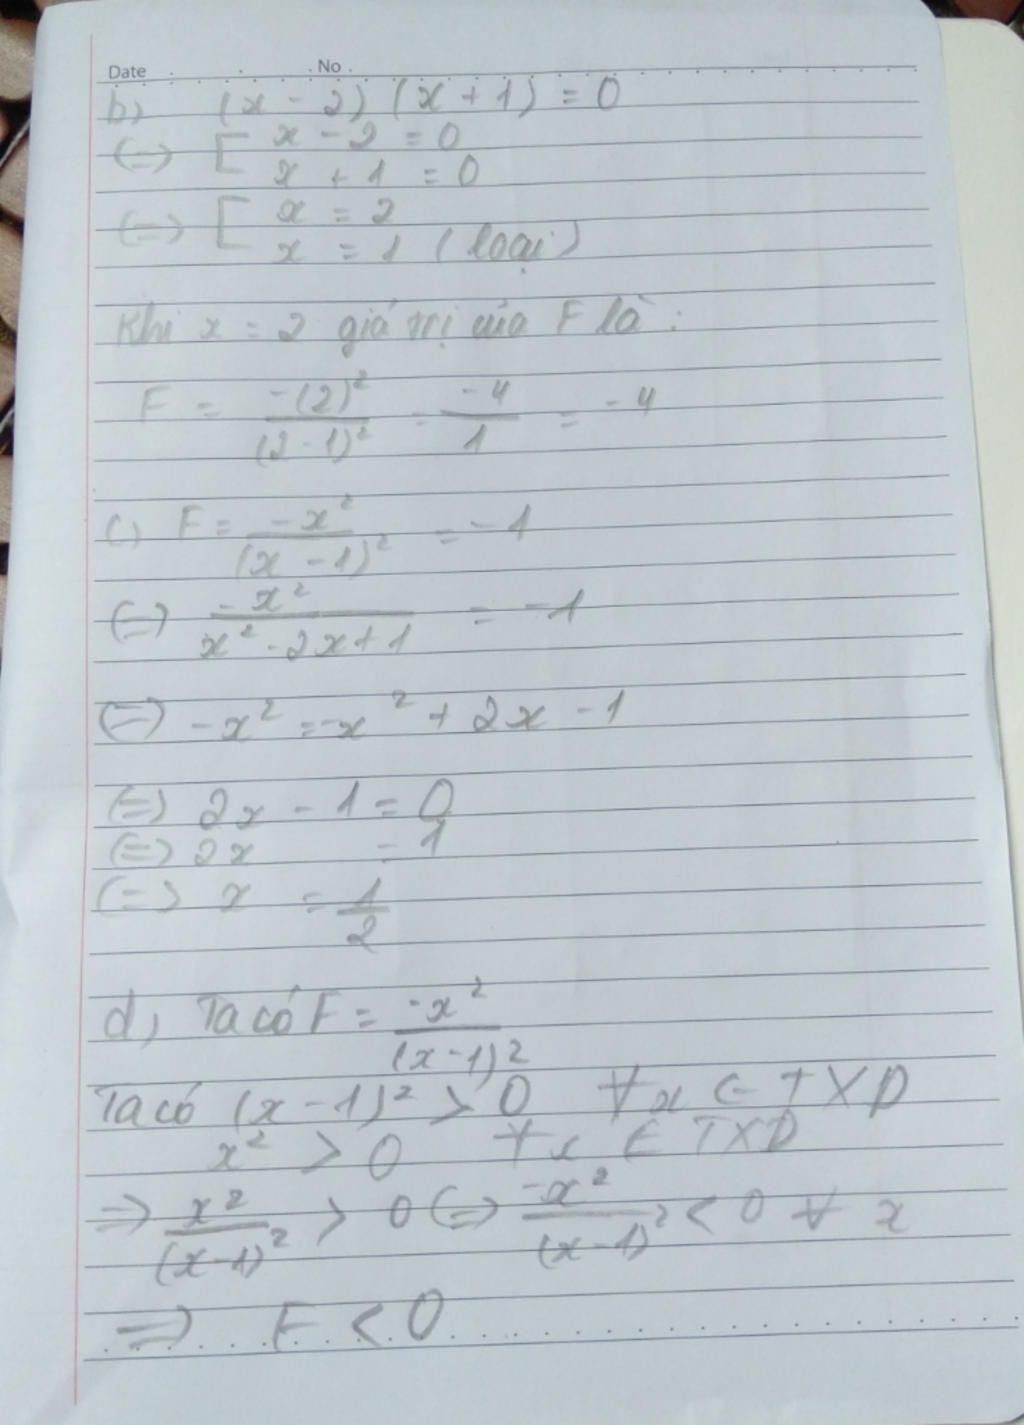 Date No
b) (x - 2) (x + 1) = 0
(=) [ x - 2 = 0
x + 1 = 0
(=) [ x = 2
x = 1 (loại)
Khi x = 2 giá trị của F là:
F = -(2)² / (2-1)² = -4 / 1 = -4
c) F = -x² / (x - 1)² = -1
(=) -x² / x² - 2x + 1 = -1
(=) -x² = -x² + 2x - 1
(=) 2x - 1 = 0
(=) 2x = 1
(=) x = 1/2
d, Ta có F = -x² / (x-1)²
Ta có (x - 1)² > 0 ∀x ∈ TXD
x² > 0 ∀x ∈ TXD
=> x² / (x-1)² > 0 (=) -x² / (x-1)² < 0 ∀ x
=> F < 0